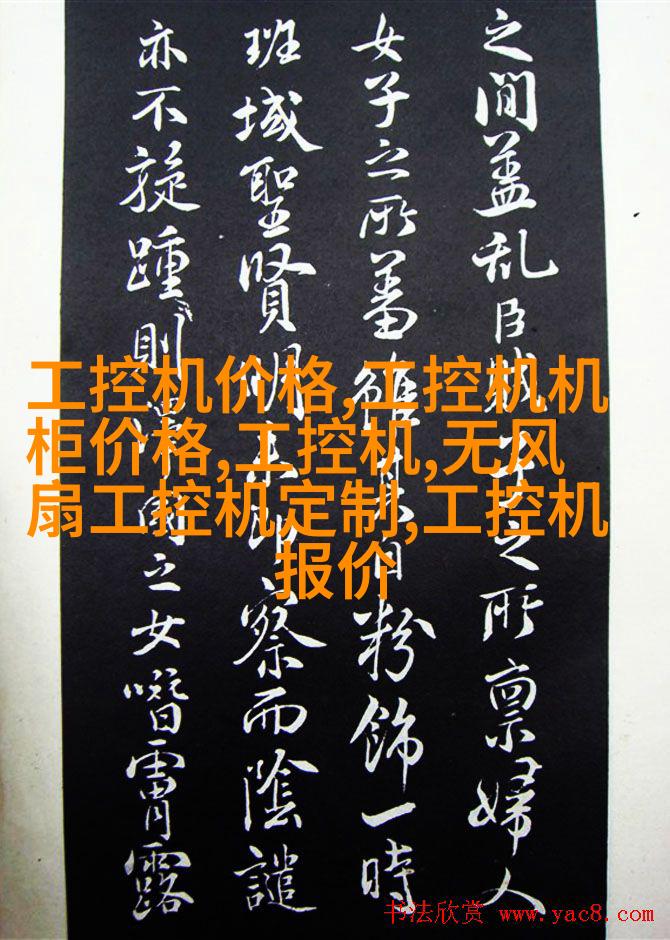 之間盖乱臣賊子之所禀婦人
女子之所蓄雖自粉飾一時
班域聖賢明察而陰譴
亦不旋踵則之女噆霄露
工控机价格,工控机机
柜价格,工控机,无风
扇工控机定制,工控机
报价
书法欣赏 www.yac8.com